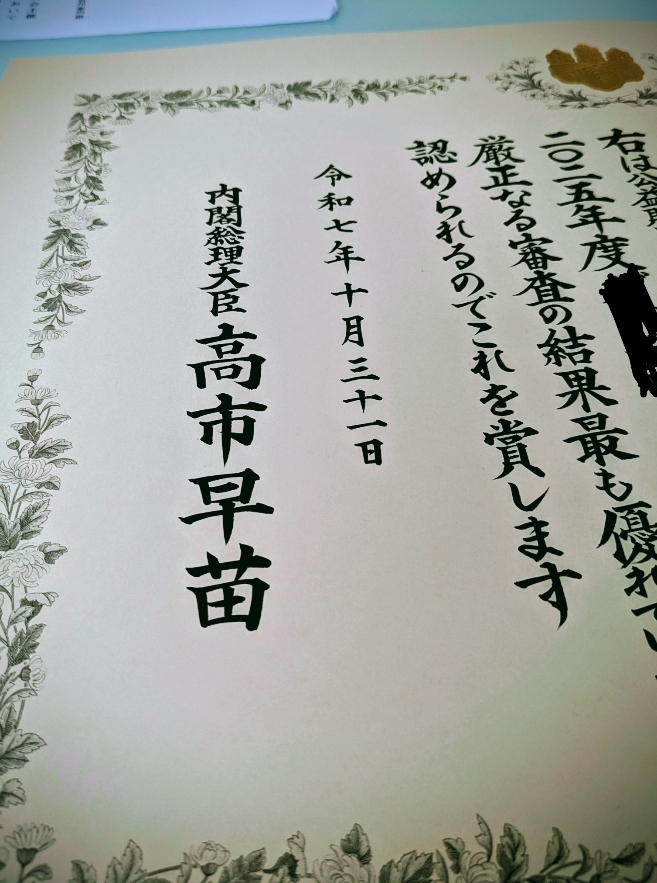 右は公益財
二〇二五年度
厳正なる審査の結果最も優れて
認められるのでこれを賞します
令和七年十月三十一日
内閣総理大臣 高市早苗